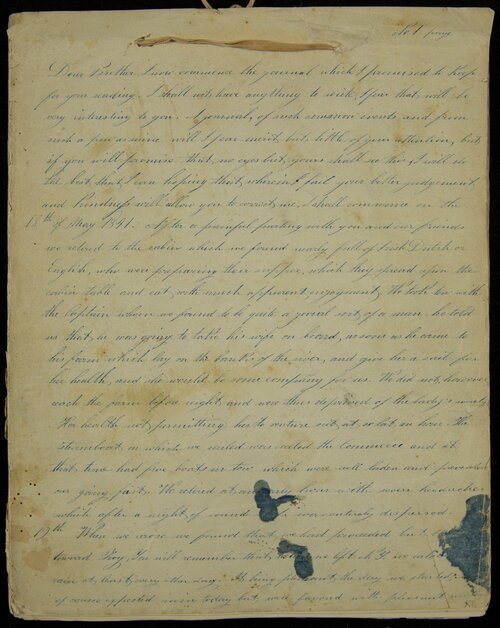 No 1 page
Dear Brother I now commence the journal which I promised to keep
for your reading. I shall not have anything to write, I fear that will be
very interesting to you. A journal, of such common events and from
such a pen as mine will I fear merit but little of your attention, but
if you will promise that no eyes but yours shall see this, I will do
the best that I can hoping that wherein I fail your better judgement
and kindness will allow you to correct me, I shall commence on the
18th of May 1841. After a painful parting with you and our friends
we retired to the cabin which we found nearly full of Irish Dutch or
English, who were preparing their supper, which they spread upon the
cabin table and eat, with much apparent enjoyment. We took tea with
the Captain whom we found to be quite a jovial sort of a man. he told
us that he was going to take his wife on board, as soon as he came to
his farm which lay on the banks of the river, and give her a sail for
her health, and she would be some company for us. We did not, however
reach the farm before night and were thus deprived of the lady's society
Her health not permitting her to venture out at so late an hour. The
Steamboat in which we sailed was called the Commerce and at
that time had five boats in tow which were well laden and prevented
our going fast. We retired at an early hour with severe headaches
which after a night of sound were entirely dispersed.
19th When we rose we found that we had proceeded but
toward Troy. You will remember that we left N.Y. we
rain at least every other day. It being pleasant the day we started
of course expected rain today but were favored with pleasant